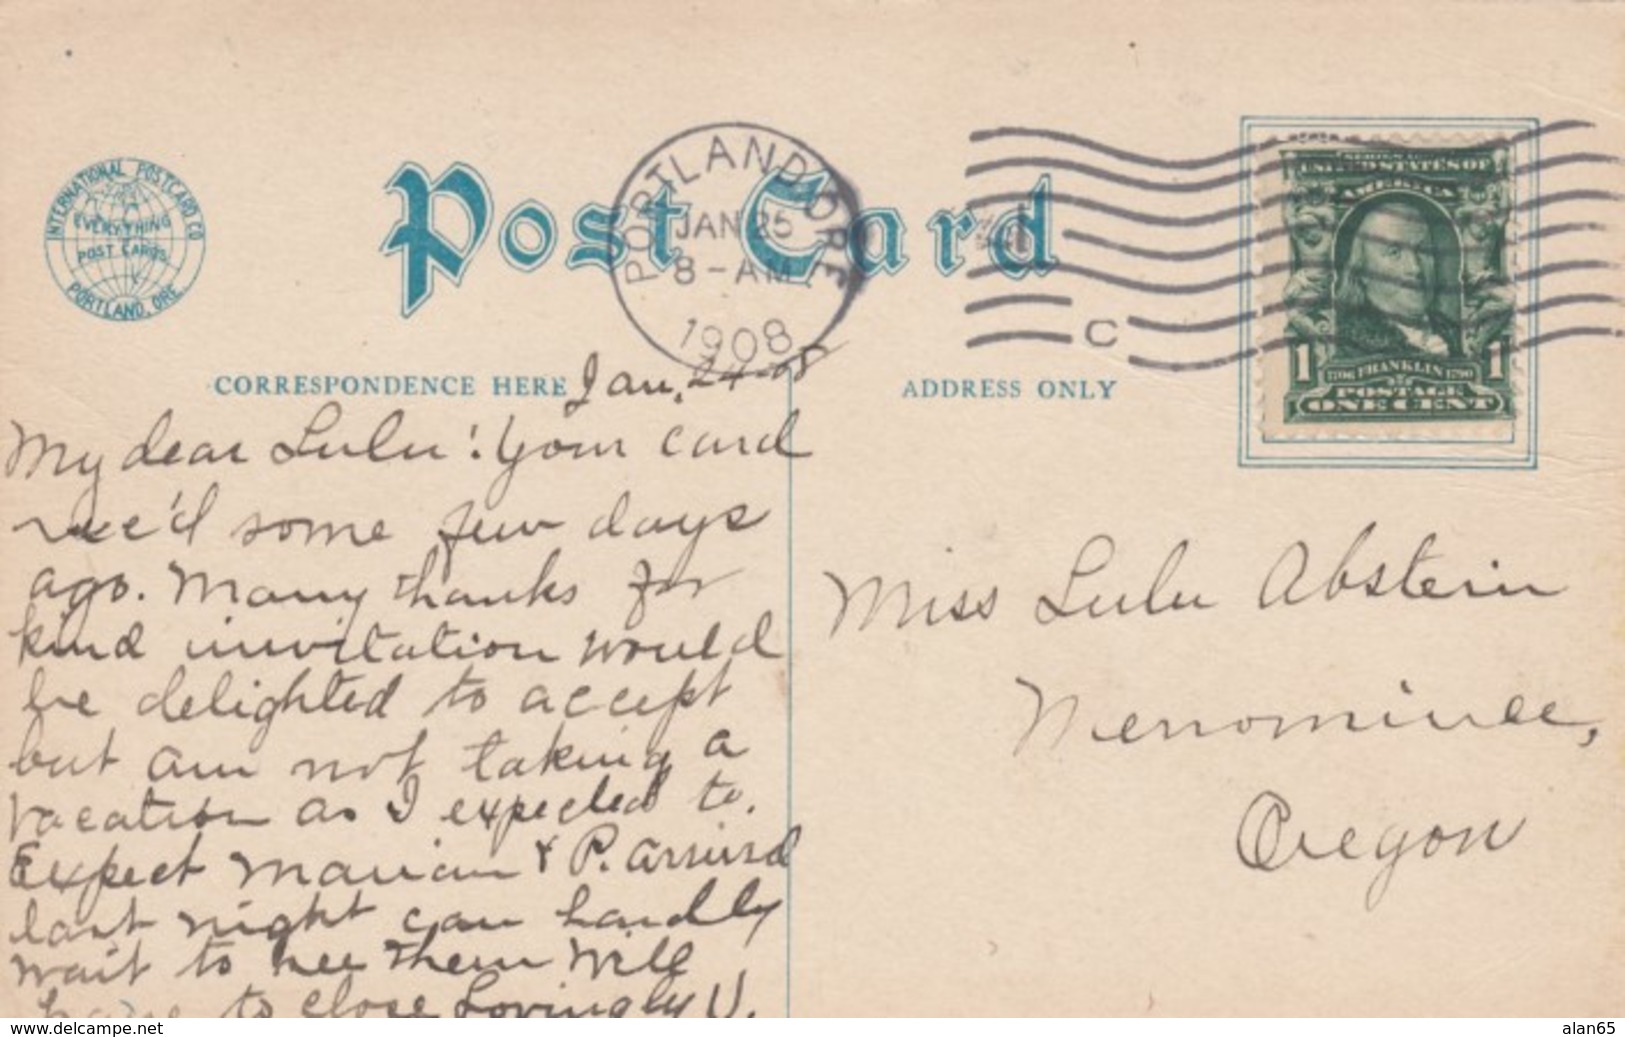 INTERNATIONAL POSTCARD CO
EVERYTHING
POST CARDS
PORTLAND, ORE.
Post Card
PORTLAND, ORE.
JAN 25
8-AM
1908
C
SERIES 1902
UNITED STATES OF
AMERICA
1 1
1706 FRANKLIN 1790
POSTAGE
ONE CENT
CORRESPONDENCE HERE
ADDRESS ONLY
Jan. 24-08
My dear Lulu! Your card
rec'd some few days
ago. Many thanks for
kind invitation would
be delighted to accept
but am not taking a
vacation as I expected to.
Expect Marian & P. arrived
last night can hardly
wait to see them Will
have to close Lovingly V.
Miss Lulu Abstein
Menominee,
Oregon
www.delcampe.net
alan65